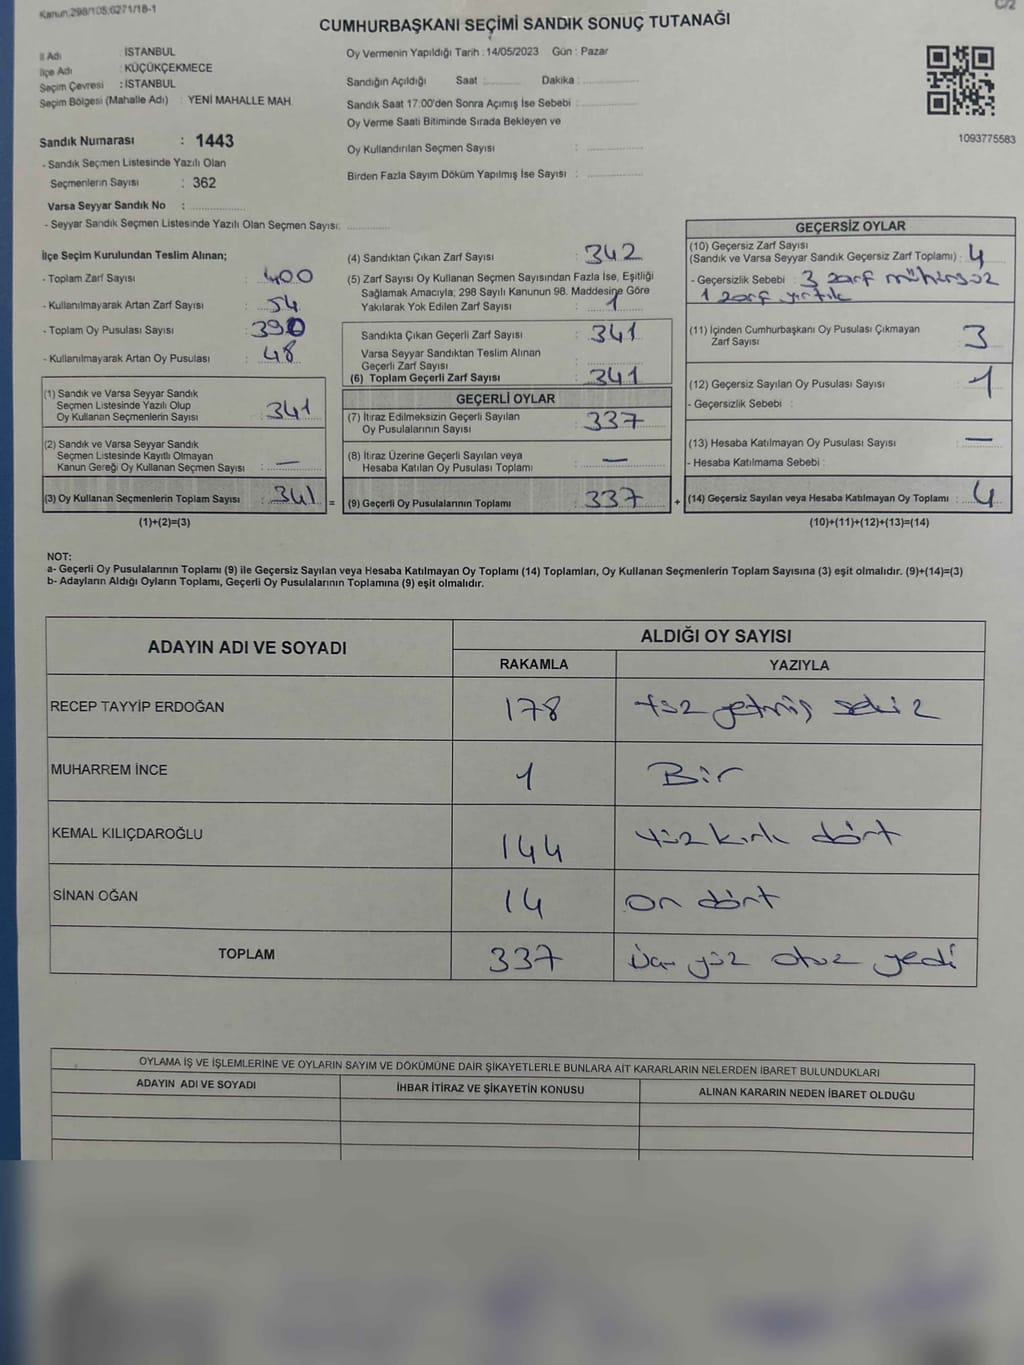 Kanun:298/105;6271/18-1
C/2
CUMHURBAŞKANI SEÇİMİ SANDIK SONUÇ TUTANAĞI
İl Adı : İSTANBUL
İlçe Adı : KÜÇÜKÇEKMECE
Seçim Çevresi : İSTANBUL
Seçim Bölgesi (Mahalle Adı) : YENİ MAHALLE MAH.
Sandık Numarası : 1443
- Sandık Seçmen Listesinde Yazılı Olan
Seçmenlerin Sayısı : 362
Varsa Seyyar Sandık No :
- Seyyar Sandık Seçmen Listesinde Yazılı Olan Seçmen Sayısı:
Oy Vermenin Yapıldığı Tarih : 14/05/2023 Gün : Pazar
Sandığın Açıldığı Saat Dakika
Sandık Saat 17:00'den Sonra Açımış İse Sebebi :
Oy Verme Saati Bitiminde Sırada Bekleyen ve
Oy Kullandırılan Seçmen Sayısı :
Birden Fazla Sayım Döküm Yapılmış İse Sayısı :
1093775583
İlçe Seçim Kurulundan Teslim Alınan;
- Toplam Zarf Sayısı : 400
- Kullanılmayarak Artan Zarf Sayısı : 54
- Toplam Oy Pusulası Sayısı : 390
- Kullanılmayarak Artan Oy Pusulası : 48
(1) Sandık ve Varsa Seyyar Sandık
Seçmen Listesinde Yazılı Olup
Oy Kullanan Seçmenlerin Sayısı : 341
(2) Sandık ve Varsa Seyyar Sandık
Seçmen Listesinde Kayıtlı Olmayan
Kanun Gereği Oy Kullanan Seçmen Sayısı : —
(3) Oy Kullanan Seçmenlerin Toplam Sayısı : 341
(1)+(2)=(3)
=
(4) Sandıktan Çıkan Zarf Sayısı : 342
(5) Zarf Sayısı Oy Kullanan Seçmen Sayısından Fazla İse, Eşitliği
Sağlamak Amacıyla; 298 Sayılı Kanunun 98. Maddesine Göre
Yakılarak Yok Edilen Zarf Sayısı : 1
Sandıkta Çıkan Geçerli Zarf Sayısı : 341
Varsa Seyyar Sandıktan Teslim Alınan
Geçerli Zarf Sayısı :
(6) Toplam Geçerli Zarf Sayısı : 341
GEÇERLİ OYLAR
(7) İtiraz Edilmeksizin Geçerli Sayılan
Oy Pusulalarının Sayısı : 337
(8) İtiraz Üzerine Geçerli Sayılan veya
Hesaba Katılan Oy Pusulası Toplamı : —
(9) Geçerli Oy Pusulalarının Toplamı : 337
+
GEÇERSİZ OYLAR
(10) Geçersiz Zarf Sayısı
(Sandık ve Varsa Seyyar Sandık Geçersiz Zarf Toplamı) : 4
- Geçersizlik Sebebi : 3 zarf mühürsüz
1 zarf yırtık
(11) İçinden Cumhurbaşkanı Oy Pusulası Çıkmayan
Zarf Sayısı : 3
(12) Geçersiz Sayılan Oy Pusulası Sayısı : 1
- Geçersizlik Sebebi :
(13) Hesaba Katılmayan Oy Pusulası Sayısı : —
- Hesaba Katılmama Sebebi :
(14) Geçersiz Sayılan veya Hesaba Katılmayan Oy Toplamı : 4
(10)+(11)+(12)+(13)=(14)
NOT:
a- Geçerli Oy Pusulalarının Toplamı (9) ile Geçersiz Sayılan veya Hesaba Katılmayan Oy Toplamı (14) Toplamları, Oy Kullanan Seçmenlerin Toplam Sayısına (3) eşit olmalıdır. (9)+(14)=(3)
b- Adayların Aldığı Oyların Toplamı, Geçerli Oy Pusulalarının Toplamına (9) eşit olmalıdır.
ADAYIN ADI VE SOYADI ALDIĞI OY SAYISI
RAKAMLA YAZIYLA
RECEP TAYYİP ERDOĞAN 178 Yüz yetmiş sekiz
MUHARREM İNCE 1 Bir
KEMAL KILIÇDAROĞLU 144 Yüz kırk dört
SİNAN OĞAN 14 on dört
TOPLAM 337 Üç yüz otuz yedi
OYLAMA İŞ VE İŞLEMLERİNE VE OYLARIN SAYIM VE DÖKÜMÜNE DAİR ŞİKAYETLERLE BUNLARA AİT KARARLARIN NELERDEN İBARET BULUNDUKLARI
ADAYIN ADI VE SOYADI İHBAR İTİRAZ VE ŞİKAYETİN KONUSU ALINAN KARARIN NEDEN İBARET OLDUĞU